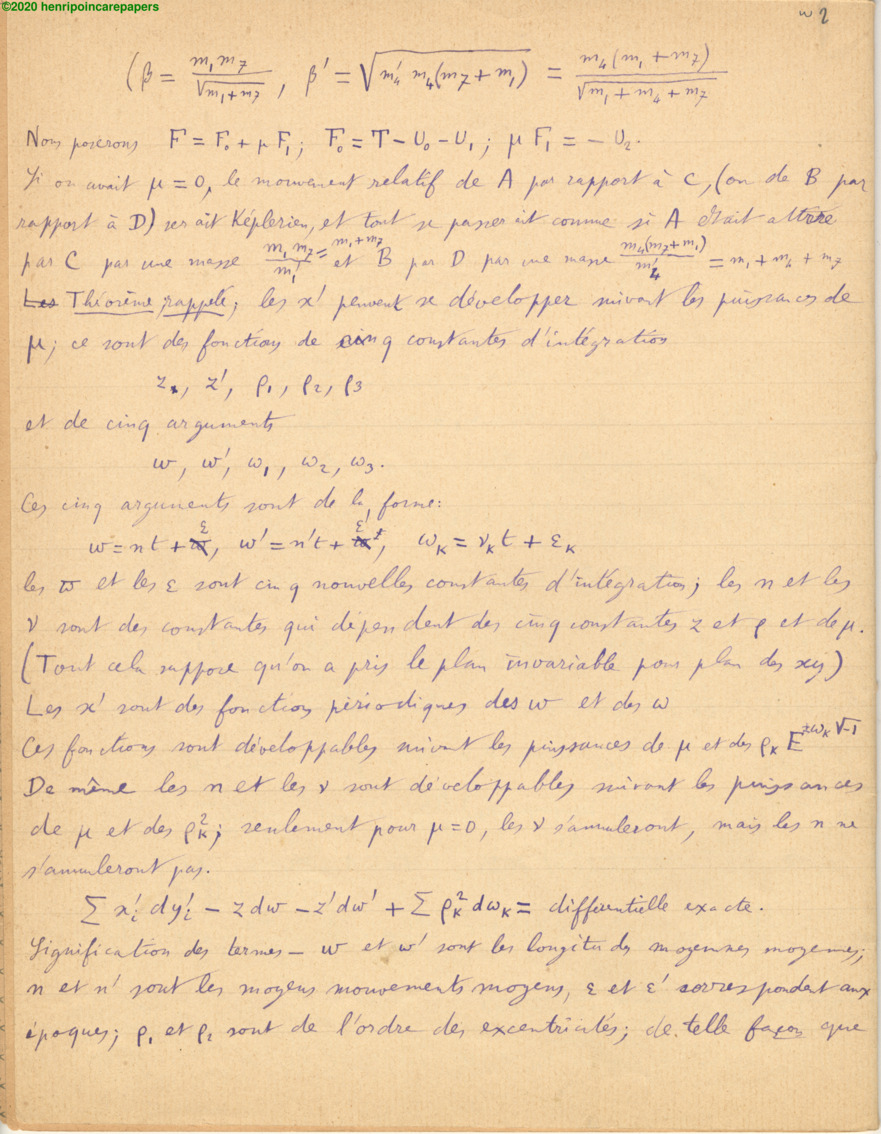 ©2020 henripoincarepapers
2
(β = m₁m₇/√(m₁+m₇), β' = √(m'₄ m₄(m₇+m₁)) = m₄(m₁+m₇)/√(m₁+m₄+m₇)
Nous poserons F = F₀ + μF₁; F₀ = T − U₀ − U₁; μF₁ = − U₂.
Si on avait μ = 0, le mouvement relatif de A par rapport à C, (ou de B par
rapport à D) serait Képlerien, et tout se passerait comme si A était attiré
par C par une masse m₁m₇/m'₁ = m₁+m₇ et B par D par une masse m₄(m₇+m₁)/m'₄ = m₁ + m₄ + m₇
Les Théorème rappelé; les x' peuvent se développer suivant les puissances de
μ; ce sont des fonctions de cinq constantes d'intégration
z, z', ρ₁, ρ₂, ρ₃
et de cinq arguments
w, w', ω₁, ω₂, ω₃.
Ces cinq arguments sont de la forme:
w = nt + ε, w' = n't + ε', ωκ = νκt + εκ
les ϖ et les ε sont cinq nouvelles constantes d'intégration; les n et les
ν sont des constantes qui dépendent des cinq constantes z et ρ et de μ.
(Tout cela suppose qu'on a pris le plan invariable pour plan des xy)
Les x' sont des fonctions périodiques des w et des ω
Ces fonctions sont développables suivant les puissances de μ et des ρκ E^(±ωκ√−1)
De même les n et les ν sont développables suivant les puissances
de μ et des ρ²κ; seulement pour μ=0, les ν s'annuleront, mais les n ne
s'annuleront pas.
∑ x'ᵢ dy'ᵢ − z dw − z'dw' + ∑ ρ²κ dωκ = différentielle exacte.
Signification des termes − w et w' sont les longitudes moyennes moyennes;
n et n' sont les moyens mouvements moyens, ε et ε' correspondent aux
époques; ρ₁ et ρ₂ sont de l'ordre des excentricités; de telle façon que